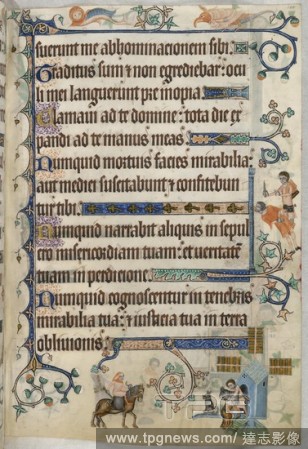 fuerunt me abhominacionem sibi:
Traditus sum ⁊ non egrediebar: ocu
li mei languerunt pre inopia
Clamaui ad te domine: tota die ex
pandi ad te manus meas.
Numquid mortuis facies mirabilia:
aut medici suscitabunt ⁊ confitebun
tur tibi.
Numquid narrabit aliquis in sepul
cro misericordiam tuam: et ueritatem
tuam in perdicione.
Numquid cognoscentur in tenebris
mirabilia tua: ⁊ iusticia tua in terra
obliuionis.
www.tpgnews.com/ 達志影像